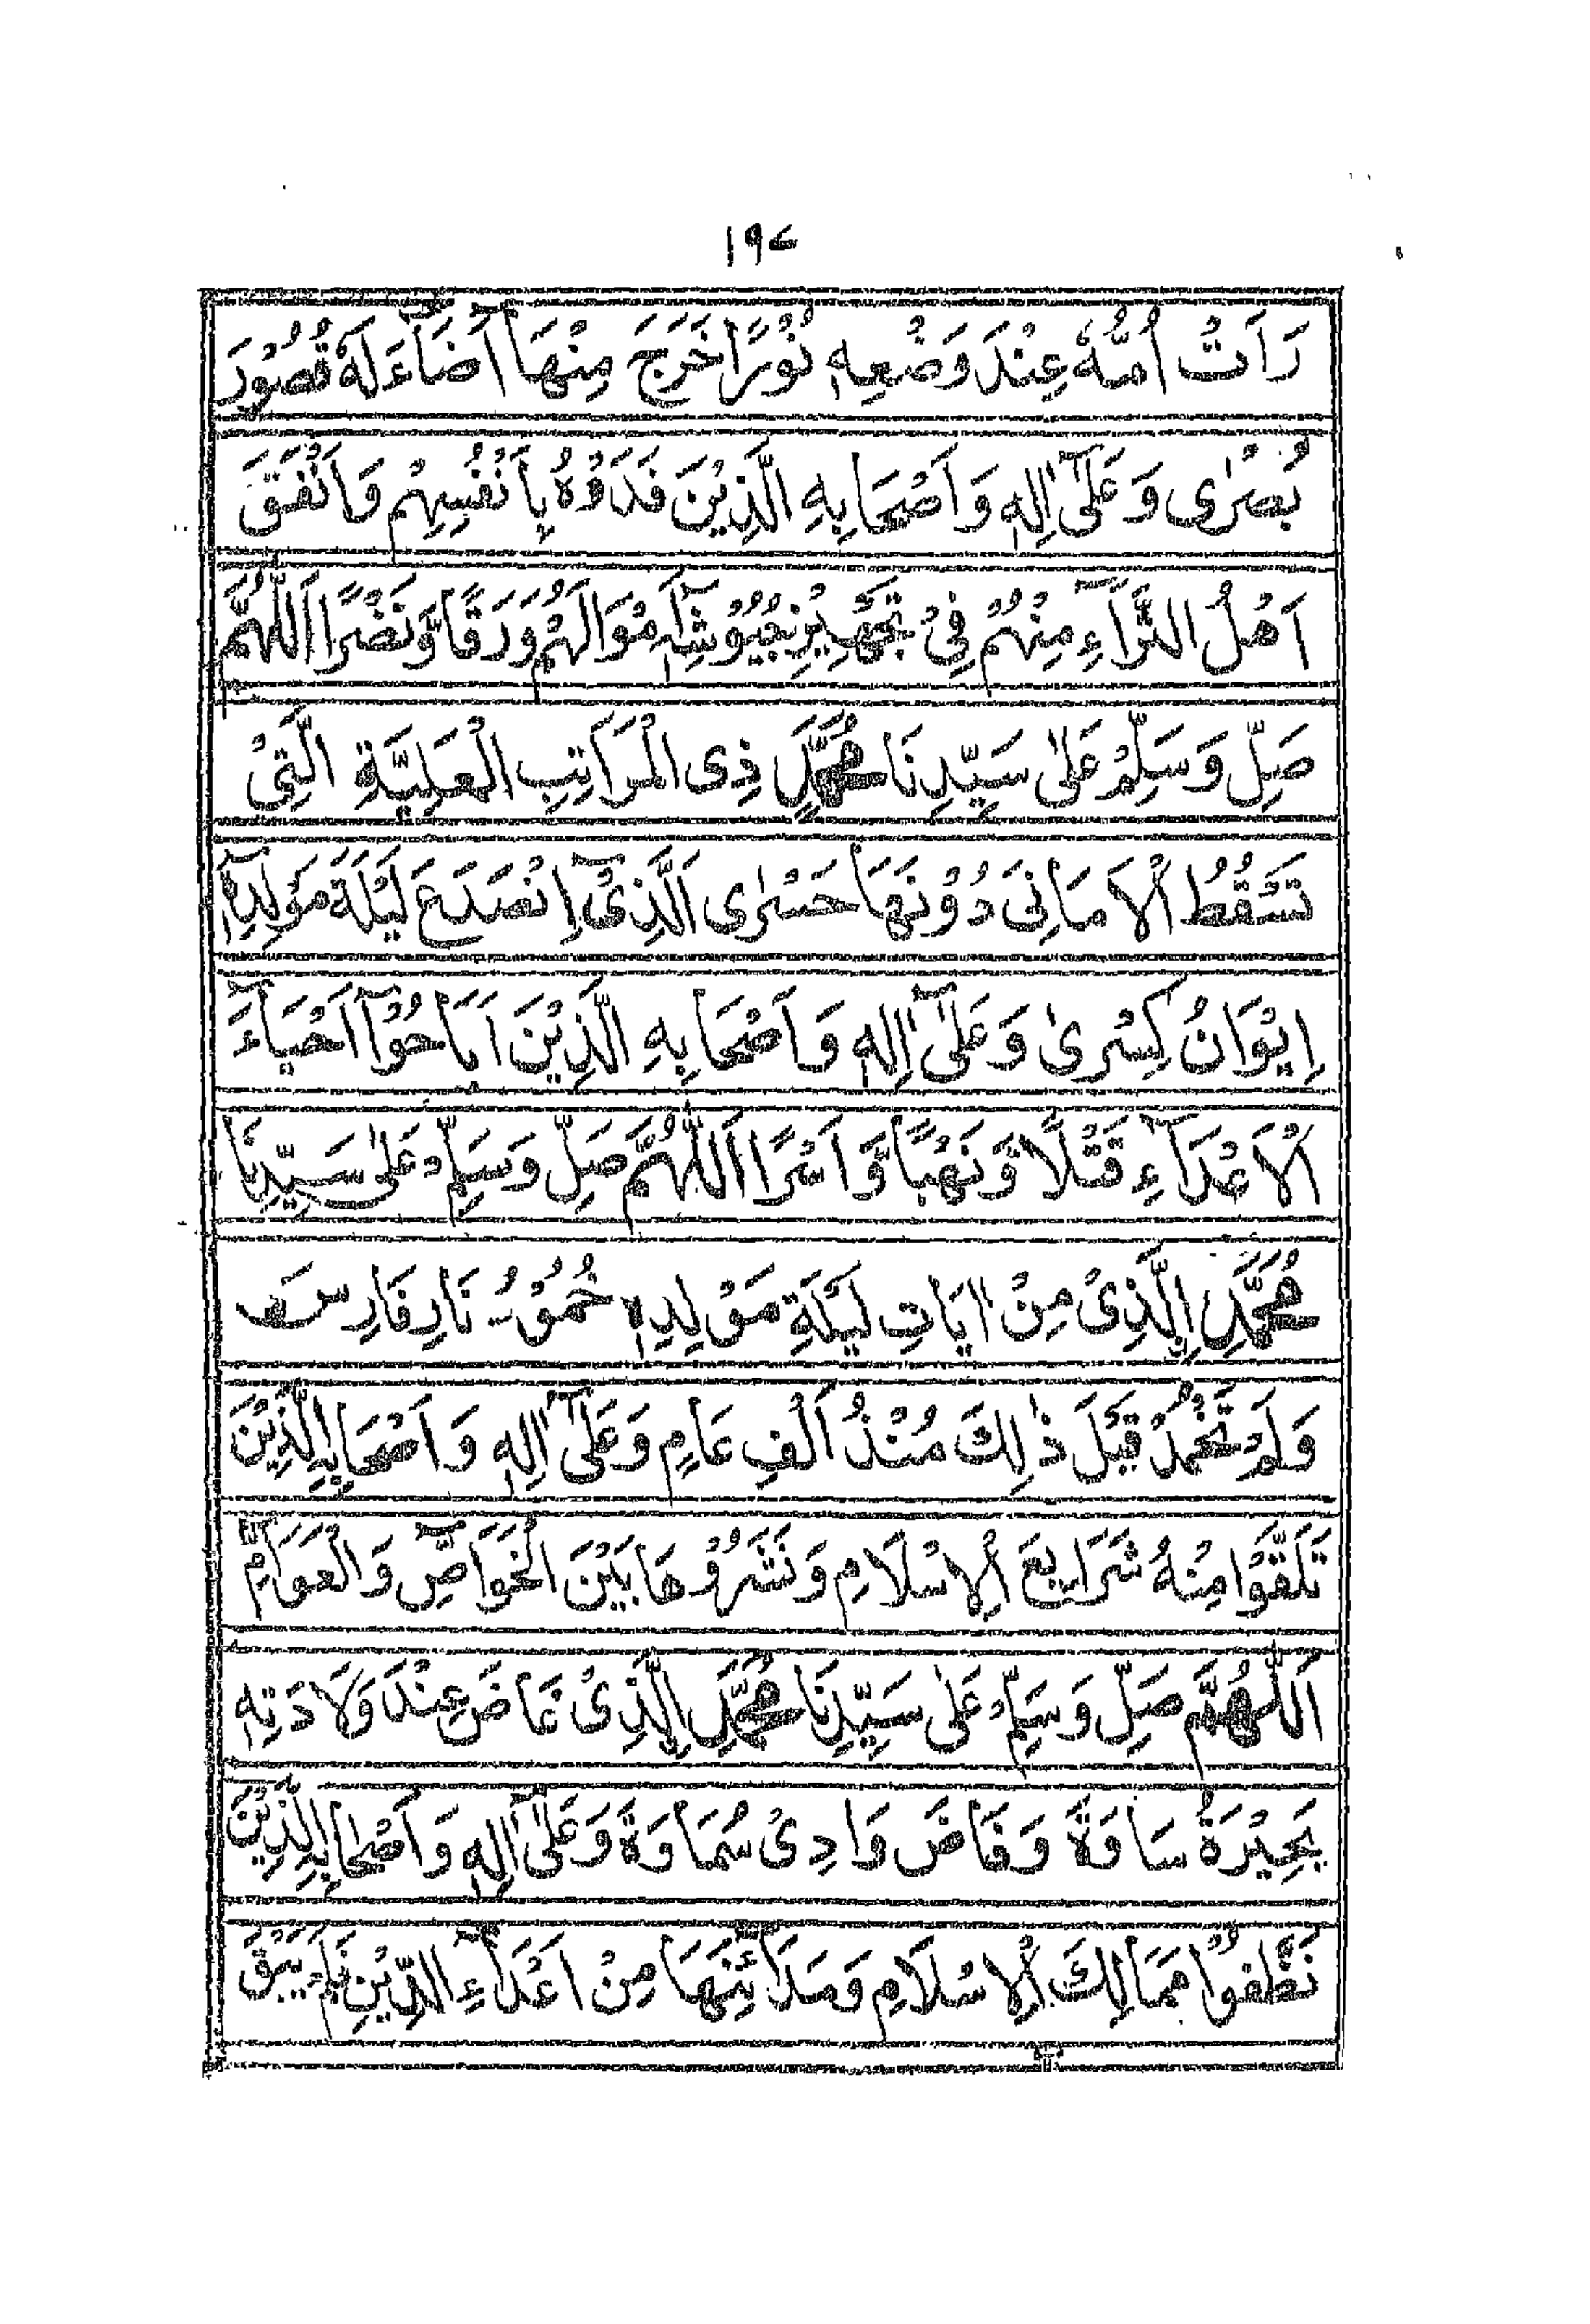 ۱۹۷
رَاَتْ اُمُّهٗ عِنْدَ وَضْعِهٖ نُوْرًا خَرَجَ مِنْهَا اَضَاءَ لَهٗ قُصُوْرَ
بُصْرٰى وَعَلٰٓى اٰلِهٖ وَاَصْحَابِهِ الَّذِيْنَ فَدَوْهُ بِاَنْفُسِهِمْ وَاَنْفَقَ
اَهْلُ الثَّرَآءِ مِنْهُمْ فِيْ تَجْهِيْزِ جُيُوْشِهٖٓ اَمْوَالَهُمْ وَرَقًا وَّنَضْرًا اَللّٰهُمَّ
صَلِّ وَسَلِّمْ عَلٰى سَيِّدِنَا مُحَمَّدٍ ذِى الْمَرَاتِبِ الْعَلِيَّةِ الَّتِيْ
تَسْقُطُ الْاَمَانِيَ دُوْنَهَا حَسْرٰى اَلَّذِيْٓ اِنْصَدَعَ لَيْلَةَ مَوْلِدِهٖٓ
اِيْوَانُ كِسْرٰى وَعَلٰٓى اٰلِهٖ وَاَصْحَابِهِ الَّذِيْنَ اَبَاحُوْٓا اَحْيَآءَ
الْاَعْدَآءِ قَتْلًا وَّنَهْبًا وَّاَسْرًا اَللّٰهُمَّ صَلِّ وَسَلِّمْ عَلٰى سَيِّدِنَا
مُحَمَّدِ اِلَّذِيْ مِنْ اٰيَاتِ لَيْلَةِ مَوْلِدِهٖ خُمُوْدُ نَارِ فَارِسَ
وَلَمْ تَخْمُدْ قَبْلَ ذٰلِكَ مُنْذُ اَلْفِ عَامٍ وَعَلٰٓى اٰلِهٖ وَاَصْحَابِهِ الَّذِيْنَ
تَلَقَّوْا مِنْهُ شَرَايِعَ الْاِسْلَامِ وَنَشَرُوْهَا بَيْنَ الْخَوَاصِّ وَالْعَوَامِّ
اَللّٰهُمَّ صَلِّ وَسَلِّمْ عَلٰى سَيِّدِنَا مُحَمَّدِ اِلَّذِيْ غَاضَ عِنْدَ وَلَادَتِهٖ
بُحَيْرَةُ سَاوَةَ وَفَاضَ وَادِىْ سَمَاوَةَ وَعَلٰٓى اٰلِهٖ وَاَصْحَابِهِ الَّذِيْنَ
نَظَّفُوْا مَمَالِكَ الْاِسْلَامِ وَمَدَآئِنَهَا مِنْ اَعْدَآءِ الدِّيْنِ فَلَمْ يَبْقَ